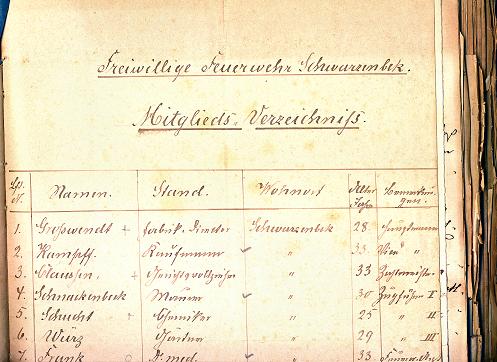 Freiwillige Feuerwehr Schwarzenbek.
Mitglieds-Verzeichniß.
Namen. Stand. Wohnort Alter
1. Großwendt + Fabrik. Director Schwarzenbek 28 Hauptmann
2. Kampff. Kaufmann " 33 Vice "
3. Claussen, + Gerichtsvollzieher " 33 Zahlmeister
4. Schnackenbek Maurer " 30 Zugführer I
5. Schucht + Chemiker " 25 " II
6. Würz Gärtner " 29 " III
7. Frank Dr. med. " 33